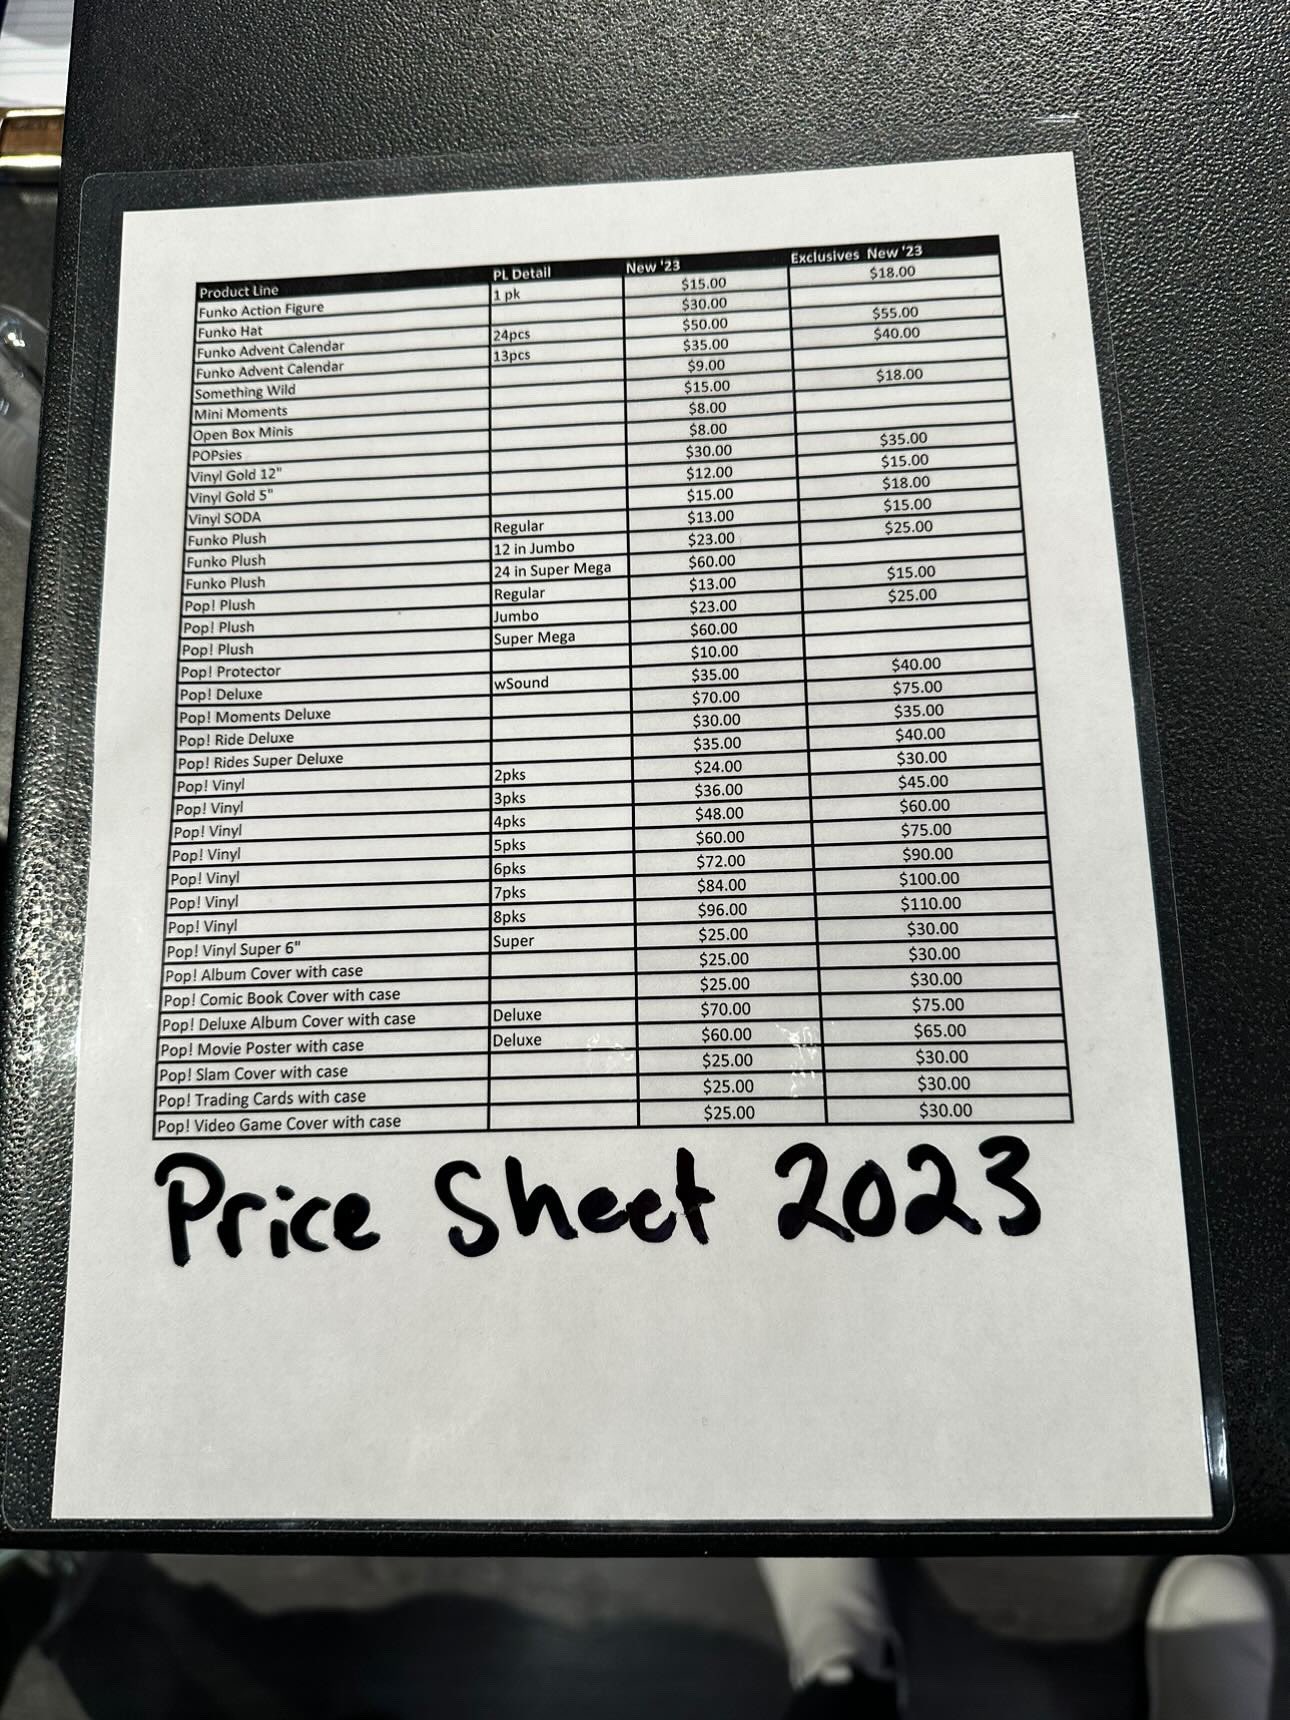 Product Line PL Detail New '23 Exclusives New '23
Funko Action Figure 1 pk $15.00 $18.00
Funko Hat $30.00
Funko Advent Calendar 24pcs $50.00 $55.00
Funko Advent Calendar 13pcs $35.00 $40.00
Something Wild $9.00
Mini Moments $15.00 $18.00
Open Box Minis $8.00
POPsies $8.00
Vinyl Gold 12" $30.00 $35.00
Vinyl Gold 5" $12.00 $15.00
Vinyl SODA $15.00 $18.00
Funko Plush Regular $13.00 $15.00
Funko Plush 12 in Jumbo $23.00 $25.00
Funko Plush 24 in Super Mega $60.00
Pop! Plush Regular $13.00 $15.00
Pop! Plush Jumbo $23.00 $25.00
Pop! Plush Super Mega $60.00
Pop! Protector $10.00
Pop! Deluxe wSound $35.00 $40.00
Pop! Moments Deluxe $70.00 $75.00
Pop! Ride Deluxe $30.00 $35.00
Pop! Rides Super Deluxe $35.00 $40.00
Pop! Vinyl 2pks $24.00 $30.00
Pop! Vinyl 3pks $36.00 $45.00
Pop! Vinyl 4pks $48.00 $60.00
Pop! Vinyl 5pks $60.00 $75.00
Pop! Vinyl 6pks $72.00 $90.00
Pop! Vinyl 7pks $84.00 $100.00
Pop! Vinyl 8pks $96.00 $110.00
Pop! Vinyl Super 6" Super $25.00 $30.00
Pop! Album Cover with case $25.00 $30.00
Pop! Comic Book Cover with case $25.00 $30.00
Pop! Deluxe Album Cover with case Deluxe $70.00 $75.00
Pop! Movie Poster with case Deluxe $60.00 $65.00
Pop! Slam Cover with case $25.00 $30.00
Pop! Trading Cards with case $25.00 $30.00
Pop! Video Game Cover with case $25.00 $30.00
Price Sheet 2023